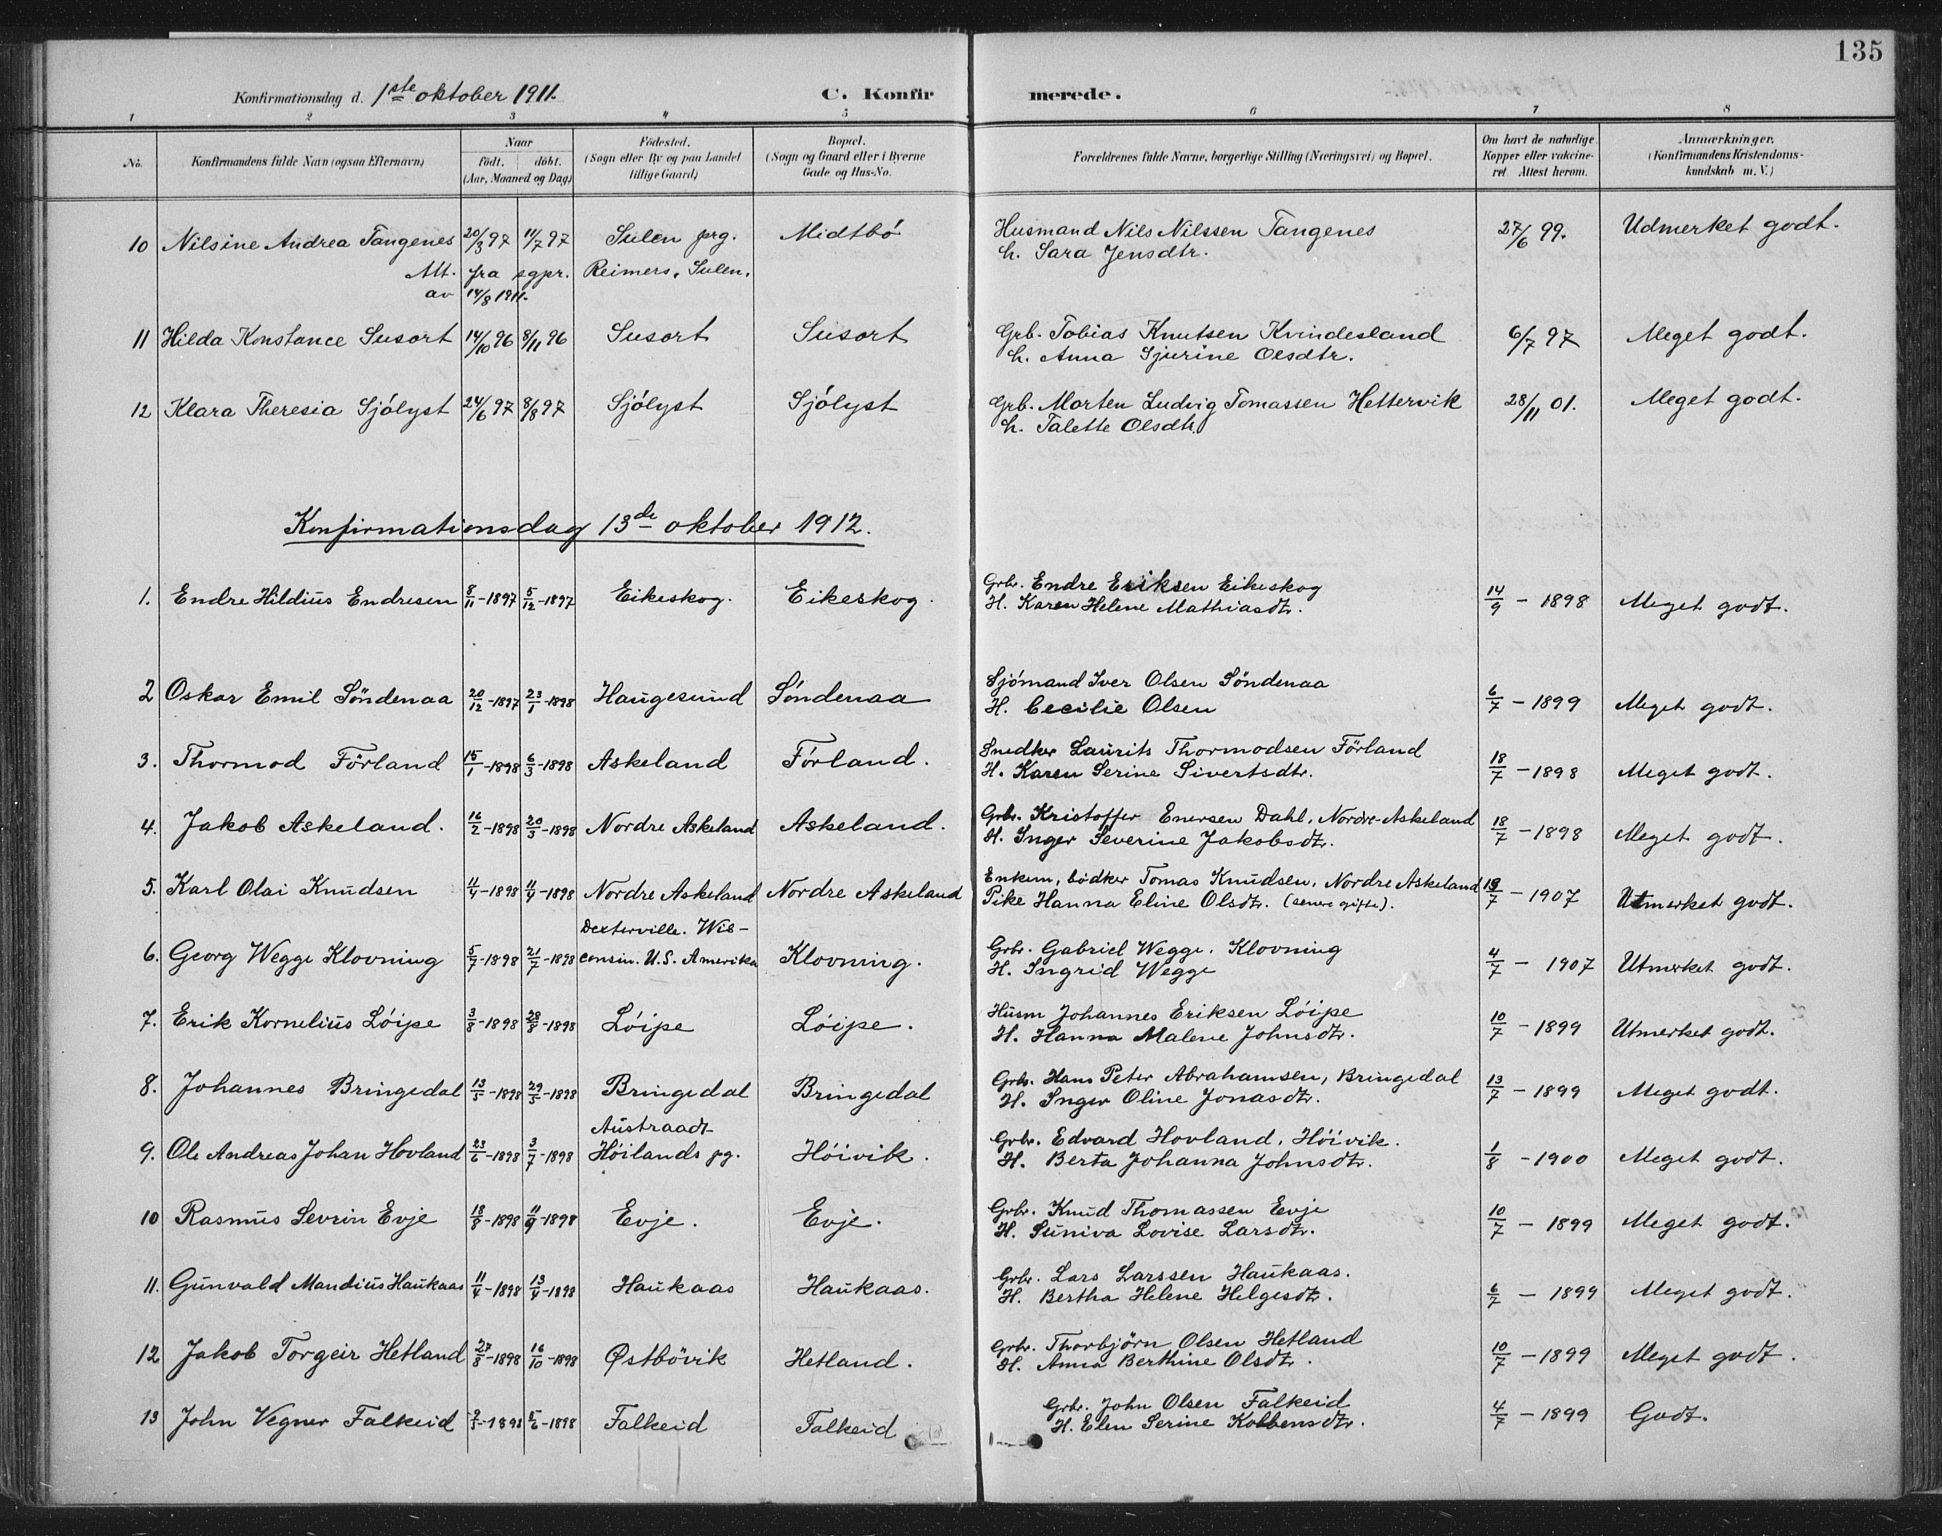 135
Konfirmationsdag d. 1ste oktober 1911. C. Konfirmerede.
1 2 3 4 5 6 7 8
No. Konfirmandens fulde Navn (ogsaa Efternavn) Naar födt. döbt. (Aar, Maaned og Dag) Födested. (Sogn eller By og paa Landet tillige Gaard) Bopæl. (Sogn og Gaard eller i Byerne Gade og Hus-No. Forældrenes fulde Navne, borgerlige Stilling (Næringsvei) og Bopæl. Om havt de naturlige Kopper eller vakcineret. Attest herom. Anmærkninger. (Konfirmandens Kristendomskundskab m. V.)
10 Nilsine Andrea Tangenes 20/3 97 11/7 97 Sulen prg. Midtbö Husmand Nils Nilssen Tangenes 27/6 99. Udmerket godt.
h. Sara Jensdtr.
Att. fra sgpr. Reimers, Sulen.
av 14/8 1911.
11 Hilda Konstance Susort 14/10 96 8/11 96 Susort Susort Grb. Tobias Knutsen Kvindesland 6/7 97 Meget godt.
h. Anna Sjurine Olsdtr.
12 Klara Theresia Sjölyst 24/6 97 8/8 97 Sjölyst Sjölyst Grb. Morten Ludvig Tomassen Hettervik 28/11 01. Meget godt.
h. Talette Olsdtr.
Konfirmationsdag 13de oktober 1912.
1. Endre Hildius Endresen 8/11-1897 5/12-1897 Eikeskog. Eikeskog. Grbr. Endre Eriksen Eikeskog 14/9 - 1898 Meget godt.
H. Karen Helene Mathiasdtr.
2 Oskar Emil Söndenaa 20/12-1897 23/1-1898 Haugesund Söndenaa Sjömand Iver Olsen Söndenaa 6/7 - 1899 Meget godt.
H. Cecilie Olsen
3. Thormod Förland 15/1-1898 6/3-1898 Askeland Förland. Snedker Laurits Thormodsen Förland 18/7 - 1898 Meget godt.
H. Karen Serine Sivertsdtr.
4. Jakob Askeland. 16/2-1898 20/3-1898 Nordre Askeland Askeland. Grbr. Kristoffer Enersen Dahl, Nordre-Askeland 18/7 - 1898 Meget godt.
H. Inger Severine Jakobsdtr.
5. Karl Olai Knudsen 11/4-1898 11/4-1898 Nordre Askeland Nordre Askeland Enkem, bödker Tomas Knudsen, Nordre Askeland - 1907 Utmerket godt.
Pike Hanna Eline Olsdtr. (senere gifte).
Dexterville. Wis-
6. Georg Wegge Klovning 5/7-1898 21/7-1898 consin. U.S. Amerika Klovning. Grbr. Gabriel Wegge, Klovning 4/7 - 1907 Utmerket godt.
H. Ingrid Wegge
7. Erik Kornelius Löipe 3/8-1898 28/8-1898 Löipe Löipe. Husm Johannes Eriksen Löipe 10/7 - 1899 Utmerket godt.
H. Hanna Malene Johnsdtr.
8. Johannes Bringedal 13/5-1898 29/5-1898 Bringedal Bringedal Grbr. Hans Peter Abrahamsen, Bringedal 13/7 - 1899 Meget godt.
H. Inger Oline Jonasdtr.
Austraadt
9. Ole Andreas Johan Hovland 23/6-1898 3/7-1898 Höilands pg. Höivik. Grbr. Edvard Hovland, Höivik. 1/8 - 1900 Meget godt.
H. Berta Johanna Johnsdtr.
10 Rasmus Sevrin Evje 18/8-1898 11/9-1898 Evje. Evje. Grbr. Knud Thomassen Evje 10/7 - 1899 Meget godt.
H. Suniva Lovise Larsdtr.
11. Gunvald Mandius Haukaas 11/4-1898 13/4-1898 Haukaas Haukaas. Grbr. Lars Larssen Haukaas. 6/7 - 1899 Meget godt.
H. Bertha Helene Helgesdtr.
12 Jakob Torgeir Hetland 27/8-1898 16/10-1898 Østbövik Hetland. Grbr. Thorbjörn Olsen Hetland 10/7 - 1899 Meget godt.
H. Anna Berthine Olsdtr.
13 John Vegner Falkeid -1898 5/6-1898 Falkeid Falkeid Grbr. John Olsen Falkeid 4/7 - 1899 Godt.
H. Elen Serine Kolbensdtr.